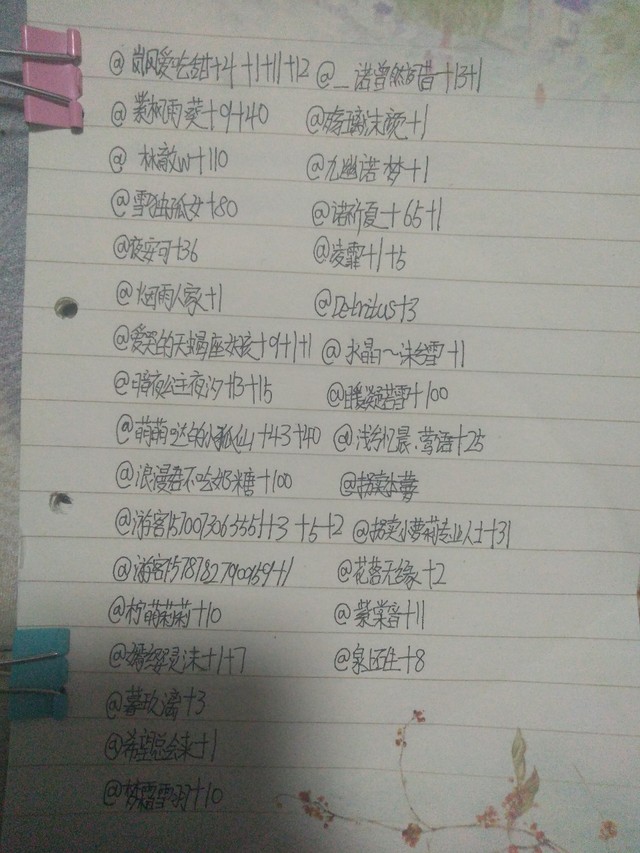 @岚风爱吃甜+4 +1+11+12 @_诺曾然问昔+13+1
@紫枫雨葵+9+40 @殇璃沫颜+1
@林敵w+110 @九幽诺梦+1
@雪独孤女+80 @诺祈夏+65+1
@夜安可+36 @凌霏+1+5
@烟雨人家+1 @Detritus+3
@爱哭的天蝎座女孩+9+1+1 @水晶~沫给雪+1
@暗夜公主夜汐+13+15 @暖凝若雪+100
@萌萌哒的小狐仙+43+40 @浅兮忆晨.莺语+25
@浪漫君不吃奶糖+100 @拐卖小萝
@游客1570073065551+3 +5+2 @拐卖小萝莉专业人士+31
@游客1578782790959+1 @花落无缘+2
@柠萌莉莉+10 @紫棠音+11
@灵沫+1+7 @泉胚生+8
@慕玖漓+3
@希望总会来+1
@梦霜雪羽+10